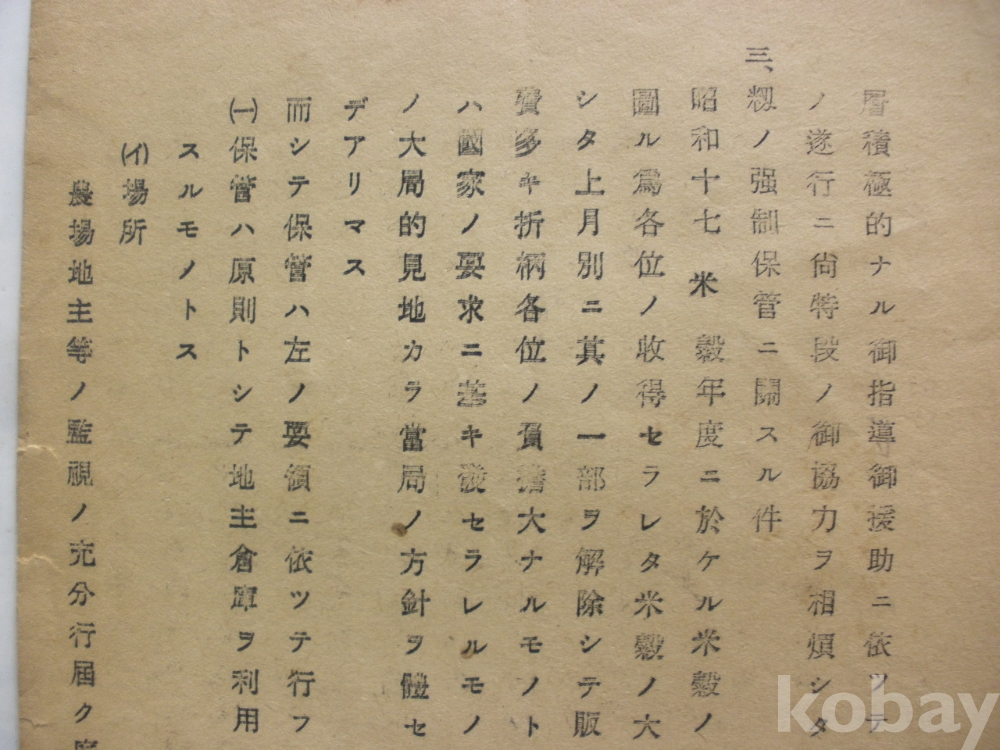 層積極的ナル御指導御援助ニ依ツテ
ノ遂行ニ尙特段ノ御協力ヲ相煩シタ
三、籾ノ强制保管ニ關スル件
昭和十七米穀年度ニ於ケル米穀ノ
圖ル爲各位ノ收得セラレタ米穀ノ大
シタ上月別ニ其ノ一部ヲ解除シテ販
費多キ折柄各位ノ負擔大ナルモノト
ハ國家ノ要求ニ基キ發セラレルモノ
ノ大局的見地カラ當局ノ方針ヲ體セ
デアリマス
而シテ保管ハ左ノ要領ニ依ツテ行フ
㈠保管ハ原則トシテ地主倉庫ヲ利用
スルモノトス
(イ)場所
農場地主等ノ監視ノ充分行屆ク
kobay